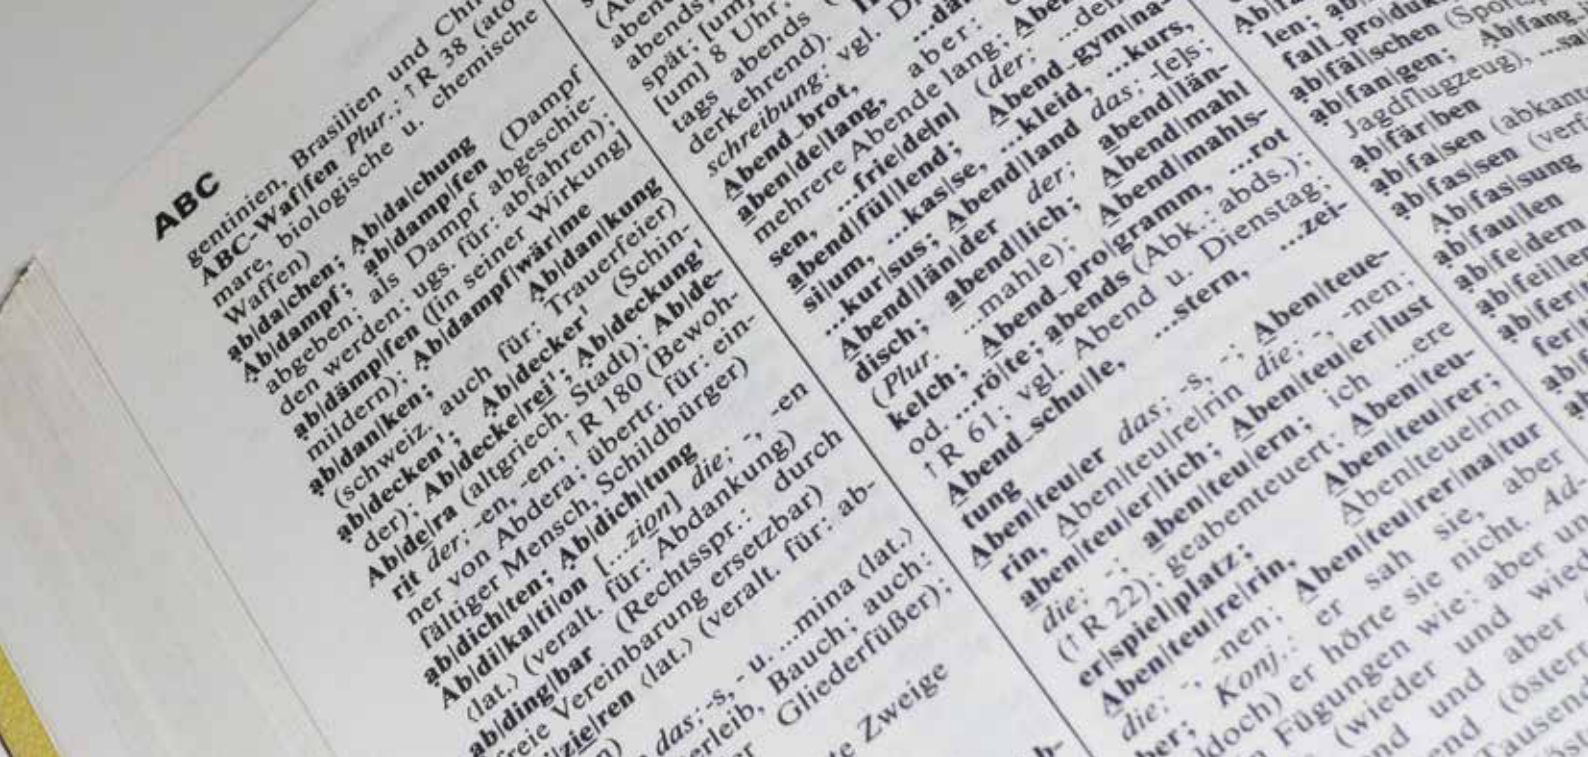 ABC
gentinien, Brasilien und Chi
ABC-Waf|fen Plur.; ↑R 38 (ato-
mare, biologische u. chemische
Waffen)
ab|da|chen; Ab|da|chung
Ab|dampf; ab|damp|fen (Dampf
abgeben; als Dampf abgeschie-
den werden; ugs. für: abfahren);
ab|dämp|fen ([in seiner Wirkung]
mildern); Ab|dampf|wär|me
ab|dan|ken; Ab|dan|kung
(schweiz. auch für: Trauerfeier)
ab|decken¹; Ab|decker¹ (Schin-
der); Ab|decke|rei¹; Ab|deckung¹
Ab|de|ra (altgriech. Stadt); Ab|de-
rit der; -en, -en; ↑R 180 (Bewoh-
ner von Abdera; übertr. für: ein-
fältiger Mensch, Schildbürger)
ab|dich|ten; Ab|dich|tung
Ab|di|ka|ti|on [...zion] die; -, -en
⟨lat.⟩ (veralt. für: Abdankung)
ab|ding|bar (Rechtsspr.: durch
freie Vereinbarung ersetzbar)
|zie|ren ⟨lat.⟩ (veralt. für: ab-
das; -s, - u. ...mina ⟨lat.⟩
erleib, Bauch; auch:
Gliederfüßer);
Zweige
abends,
spät; [um]
[um] 8 Uhr,
tags abends
derkehrend).
schreibung: vgl.
Abend_brot, aber:
aben|de|lang,
mehrere Abende lang; Abe
sen, ...frie|de[n] (der: ...den
abend|fül|lend; Abend_gym|na-
si|um, ...kas|se, ...kleid, ...kurs,
...kur|sus; Abend|land das; -[e]s;
Abend|län|der der; abend|län-
disch; abend|lich; Abend|mahl
(Plur. ...mahle); Abend|mahls-
kelch; Abend_pro|gramm, ...rot
od. ...rö|te; abends (Abk.: abds.);
↑R 61; vgl. Abend u. Dienstag;
Abend_schu|le, ...stern, ...zei-
tung
Aben|teu|er das; -s, -; Aben|teue-
rin, Aben|teu|re|rin die; -, -nen;
aben|teu|er|lich; Aben|teu|er|lust
die; -; aben|teu|ern; ich ...ere
(↑R 22); geabenteuert; Aben|teu-
er|spiel|platz; Aben|teu|rer;
Aben|teu|re|rin, Abenteuerin
die; -, -nen; Aben|teu|rer|na|tur
ber; Konj.: er sah sie, aber
doch) er hörte sie nicht. Ad-
Fügungen wie: aber un
(wieder und wied
und aber
(österr
Tausend
len;
fall_pro|dukt
ab|fäl|schen (Sportspr
ab|fan|gen; Ab|fang_j
Jagdflugzeug), ...sa
ab|fär|ben
ab|fa|sen (abkant
ab|fas|sen (verf
Ab|fas|sung
ab|fau|len
ab|fe|dern
ab|fei|len